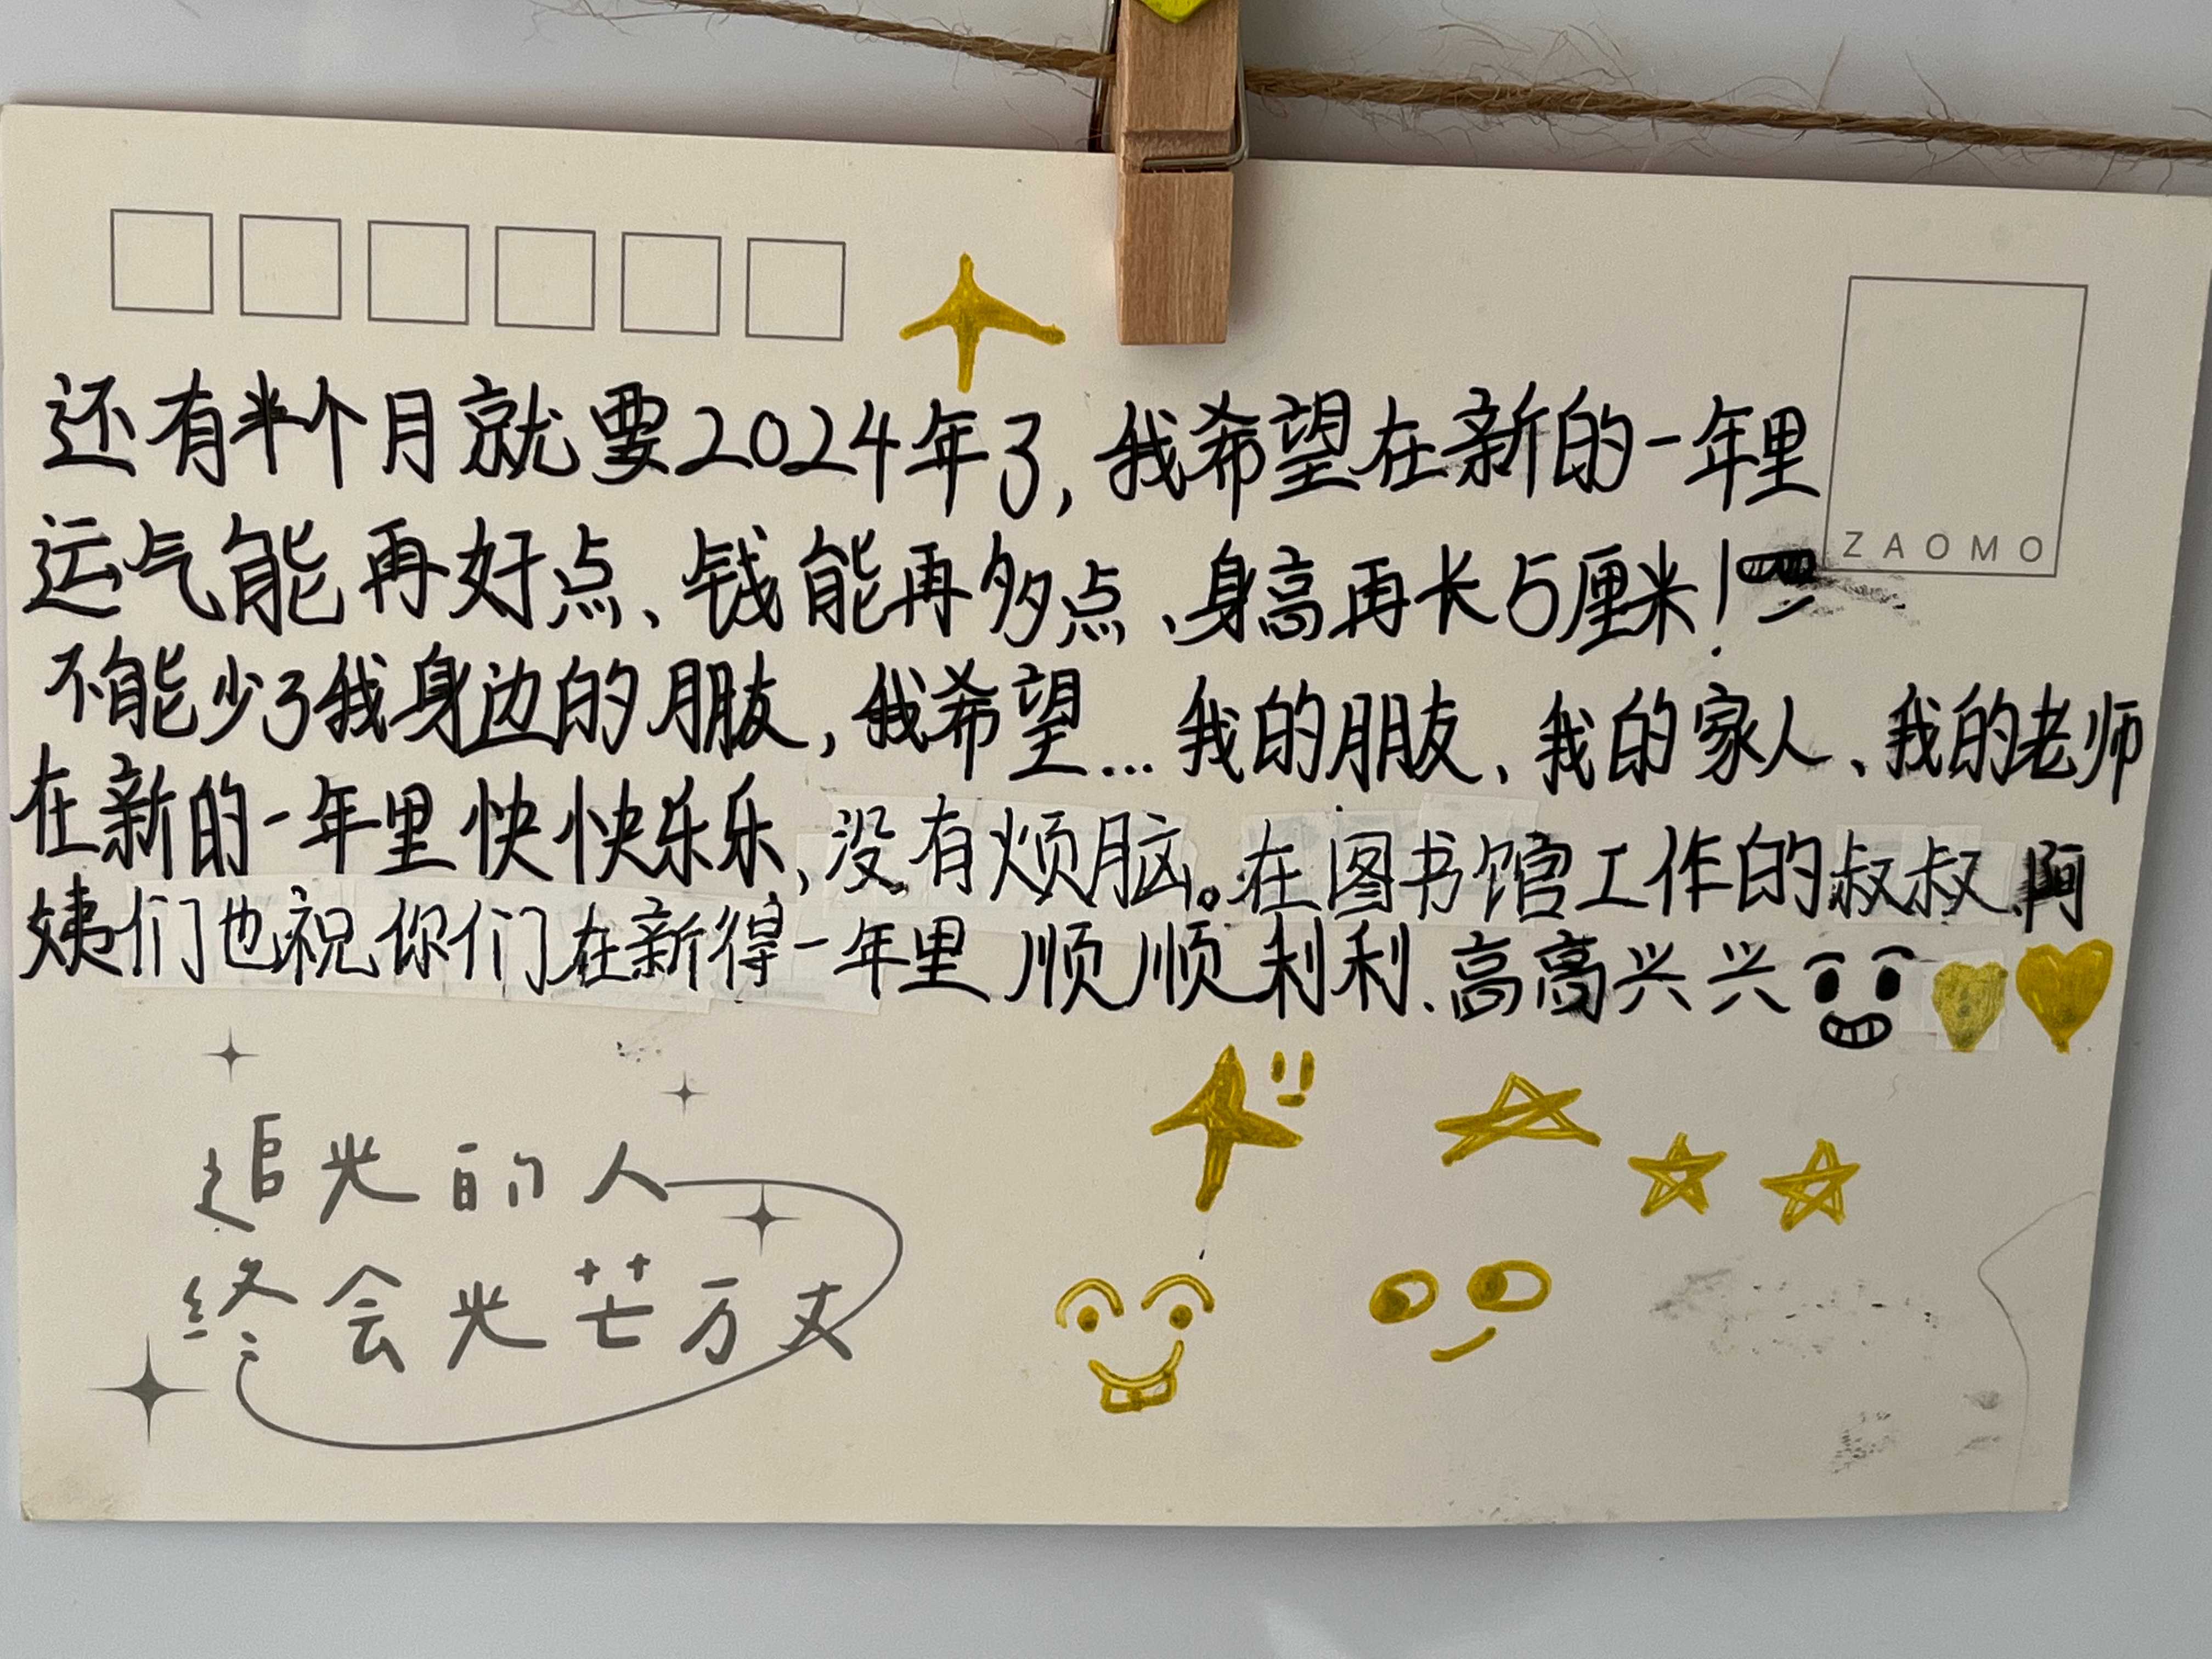 还有半个月就要2024年了,我希望在新的一年里
运气能再好点、钱能再多点、身高再长5厘米!
ZAOMO
不能少了我身边的朋友,我希望...我的朋友、我的家人、我的老师
在新的一年里快快乐乐,没有烦脑。在图书馆工作的叔叔、阿
姨们也祝你们在新得一年里顺顺利利、高高兴兴
追光的人
终会光芒万丈